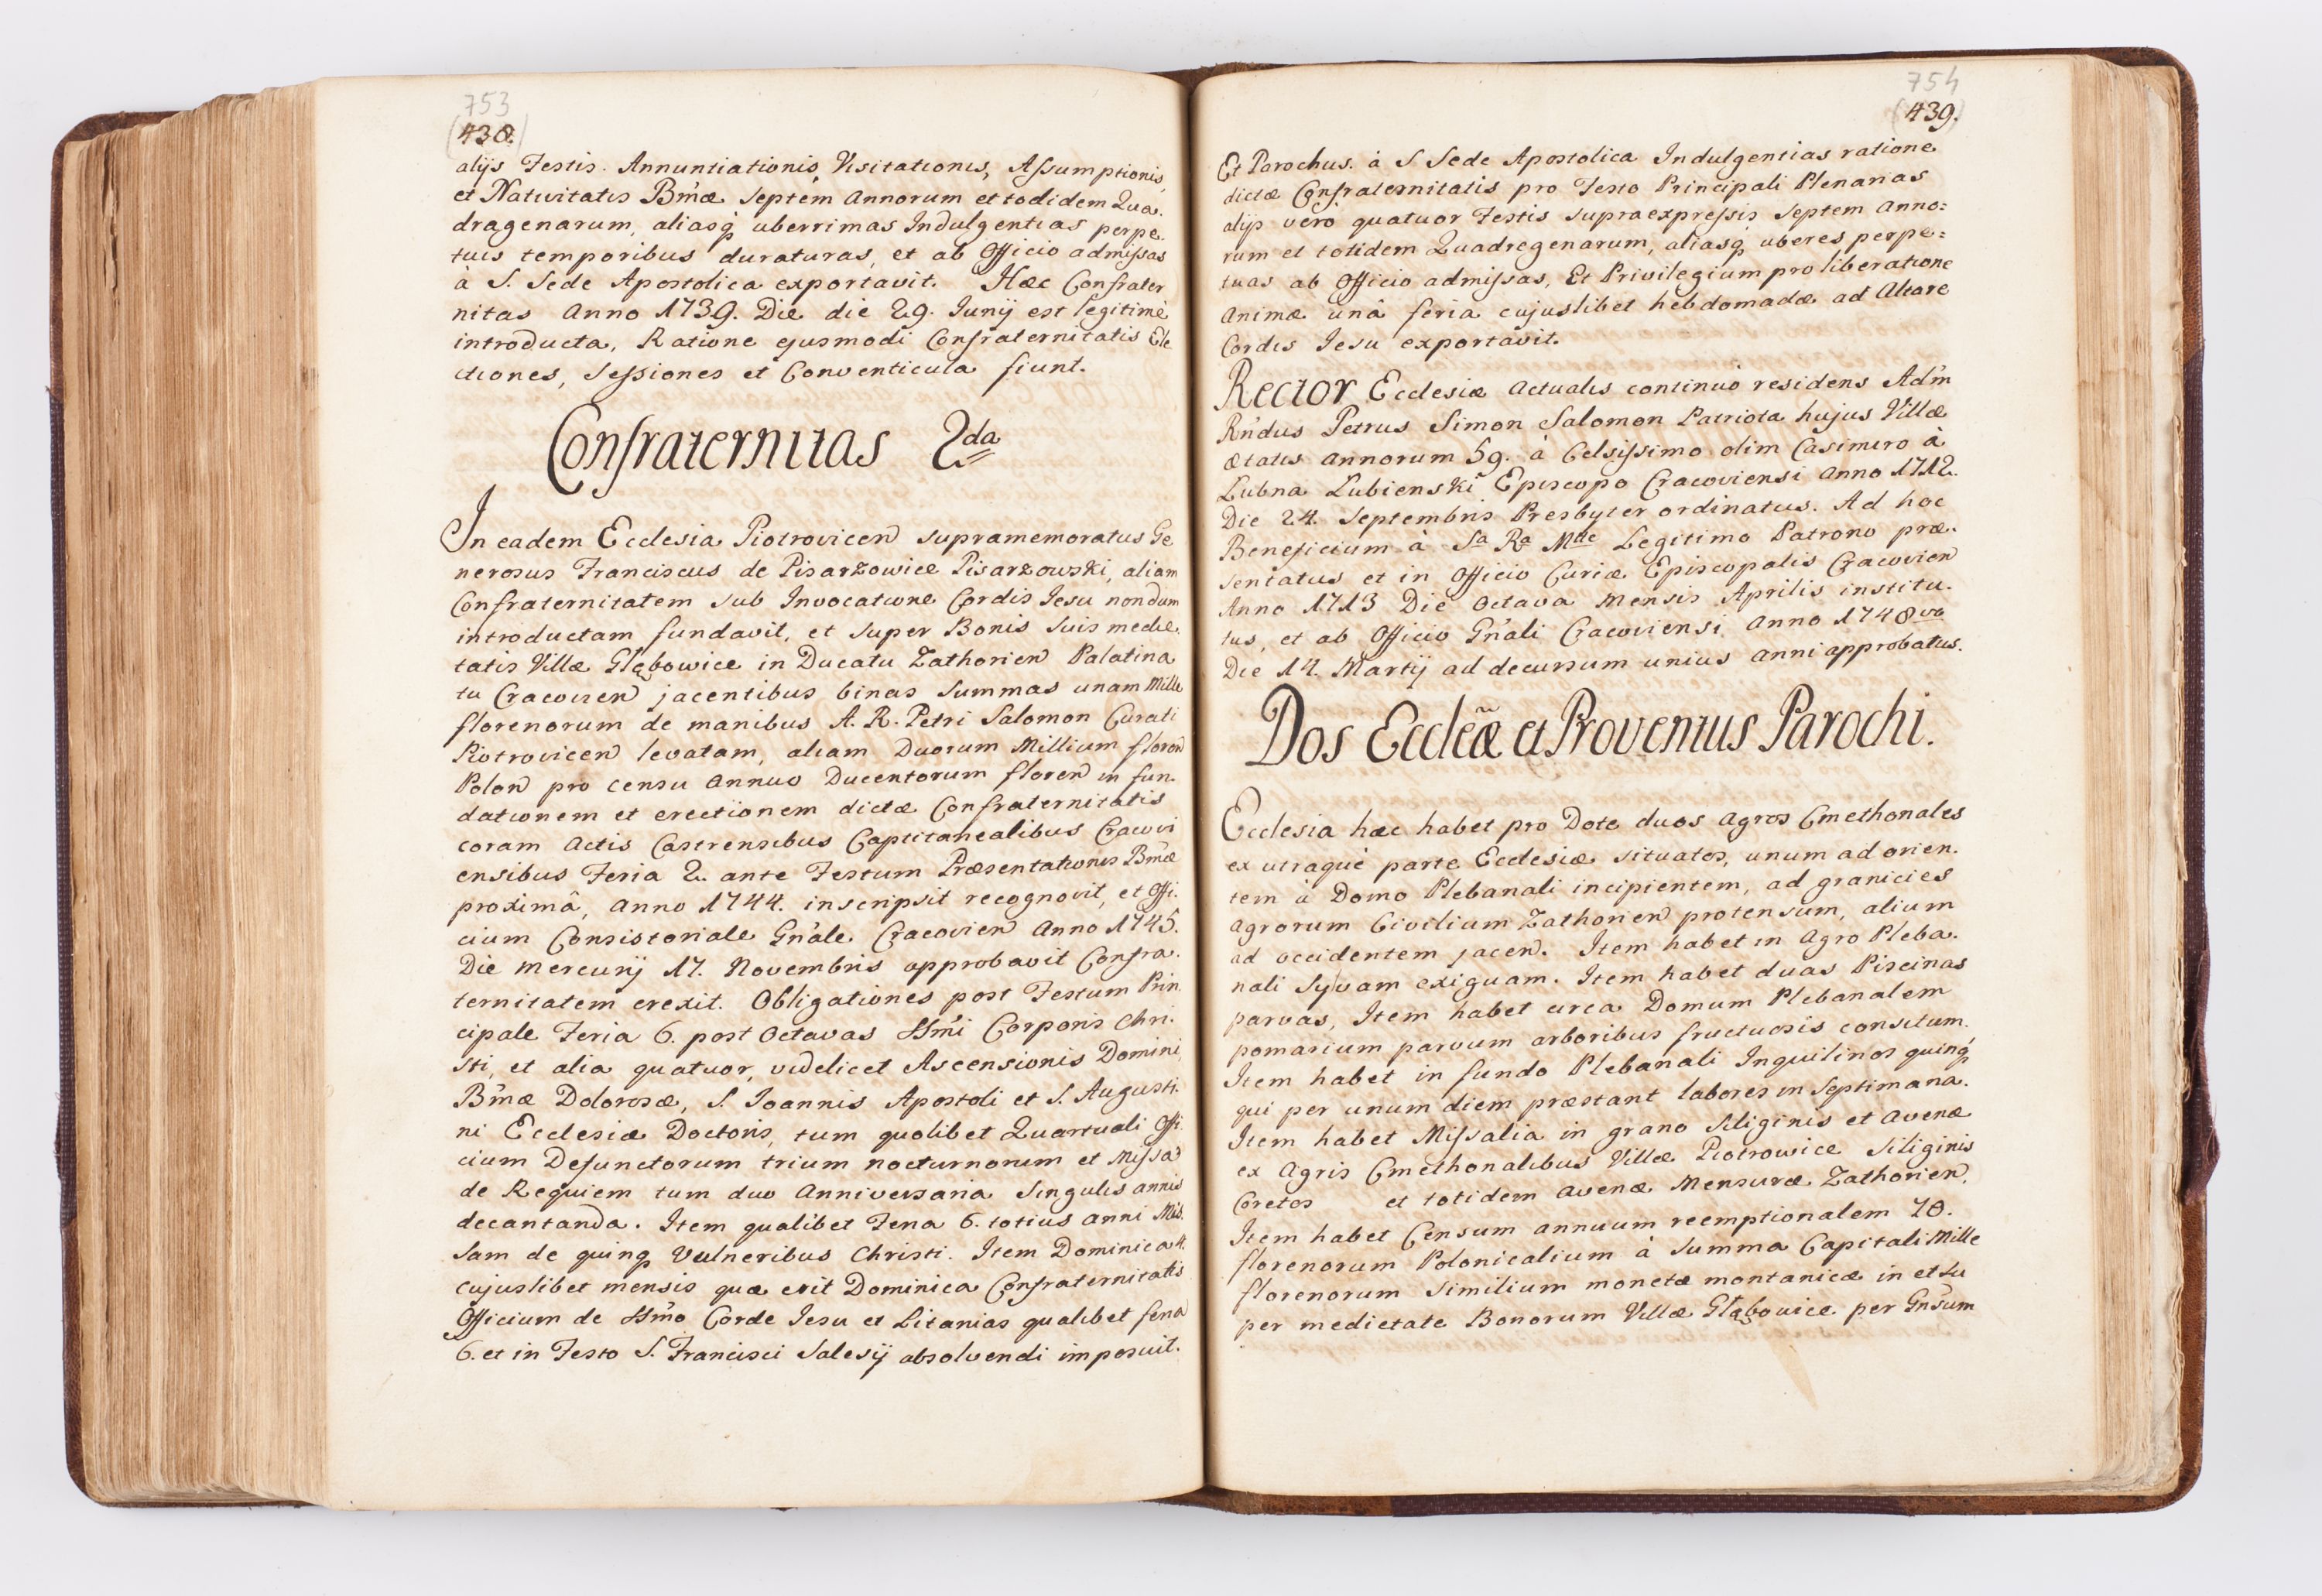 753
(438.)
alijs Festis. Annuntiationis, Visitationis, Assumptionis,
et Nativitatis Bmæ Septem Annorum et todidem Qua-
dragenarum, aliasq; uberrimas Indulgentias perpe-
tuis temporibus duraturas, et ab Officio admissas
à S. Sede Apostolica exportavit. Hæc Confrater
nitas Anno 1739. Die die 29. Junij est legitimè
introducta, Ratione ejusmodi Confraternitatis Ele
ctiones, Sessiones et Conventicula fiunt.
Confraternitas 2da
In eadem Ecclesia Piotrovicen supramemoratus Ge
nerosus Franciscus de Pisarzowice Pisarzowski, aliam
Confraternitatem sub Invocatione Cordis Jesu nondum
introductam fundavit, et super Bonis suis medie
tatis Villæ Głąbowice in Ducatu Zathorien Palatina
tu Cracovien jacentibus binas Summas unam Mille
florenorum de manibus A. R. Petri Salomon Curati
Piotrovicen levatam, aliam Duorum Millium floren
Polon pro censu annuo Ducentorum floren in fun-
dationem et erectionem dictæ Confraternitatis
coram Actis Castrensibus Captitanealibus Cracovi
ensibus Feria 2. ante Festum Præsentationis Bmæ
proximâ, Anno 1744. inscripsit recognovit, et Offi-
cium Consistoriale Gnale Cracovien Anno 1745.
Die Mercurij 17. Novembris approbavit Confra-
ternitatem erexit. Obligationes post Festum Prin
cipale Feria 6. post Octavas SSmi Corporis Chri-
sti, et alia quatuor, videlicet Ascensionis Domini,
Bmæ Dolorosæ, S. Joannis Apostoli et S. Augusti-
ni Ecclesiæ Doctoris, tum quolibet Quartuali Offi-
cium Defunctorum trium nocturnorum et Missa
de Requiem tum duo Anniversaria singulis annis
decantanda. Item qualibet Feria 6. totius anni Mis-
sam de quinq; Vulneribus Christi. Item Dominica 4.
cujuslibet mensis quæ erit Dominica Confraternitatis
Officium de SSmo Corde Jesu et Litanias qualibet feria
6. et in Festo S. Francisci Salesij absolvendi imposuit.
754
(439.)
Et Parochus. à S. Sede Apostolica Indulgentias ratione
dictæ Confraternitatis pro Festo Principali Plenarias
alijs vero quatuor Festis supraexpressis septem Anno=
rum et totidem Quadregenarum, aliasq; uberes perpe=
tuas ab Officio admissas, Et Privilegium pro liberatione
Animæ unâ feria cujuslibet hebdomadæ ad Altare
Cordis Jesu exportavit.
Rector Ecclesiæ Actualis continuò residens Adm
Rndus Petrus Simon Salomon Patriota hujus Villæ
ætatis Annorum 59. à Celsissimo olim Casimiro à
Lubna Lubienski Episcopo Cracoviensi Anno 1712.
Die 24. Septembris Presbyter ordinatus. Ad hoc
Beneficium à Sa Ra Mtte Legitimo Patrono præ-
sentatus et in Officio Curiæ Episcopalis Cracovien
Anno 1713 Die Octava Mensis Aprilis institu-
tus, et ab Officio Gnali Cracoviensi Anno 1748vo
Die 14. Martij ad decursum unius anni approbatus.
Dos Ecclẽæ et Proventus Parochi.
Ecclesia hæc habet pro Dote duos Agros Cmethonales
ex utraque parte Ecclesiæ situatos, unum ad orien-
tem à Domo Plebanali incipientem, ad granicies
agrorum Civilium Zathorien protensum, alium
ad occidentem jacen. Item habet in Agro Pleba-
nali Sylvam exiguam. Item habet duas Piscinas
parvas, Item habet circa Domum Plebanalem
pomarium parvum arboribus fructuosis consitum.
Item habet in fundo Plebanali Inquilinos quinq;
qui per unum diem præstant labores in Septimana.
Item habet Missalia in grano Siliginis et Avenæ
ex Agris Cmethonalibus Villæ Piotrowice Siliginis
Coretos et totidem avenæ Mensuræ Zathorien.
Item habet Censum annuum reemptionalem 70.
florenorum Polonicalium à Summa Capitali Mille
florenorum Similium monetæ montanicæ in et su
per medietate Bonorum Villæ Głąbowice per Gnsum